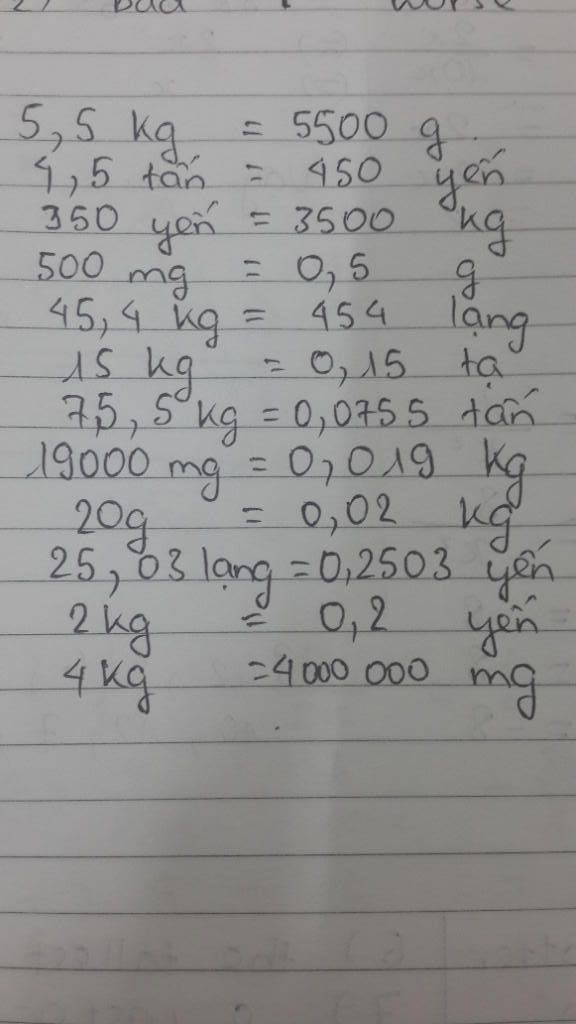 2) bad worse
5,5 kg = 5500 g.
4,5 tấn = 450 yến
350 yến = 3500 kg
500 mg = 0,5 g
45,4 kg = 454 lạng
15 kg = 0,15 tạ
75,5 kg = 0,0755 tấn
19000 mg = 0,019 kg
20g = 0,02 kg
25,03 lạng = 0,2503 yến
2 kg = 0,2 yến
4 kg = 4000 000 mg